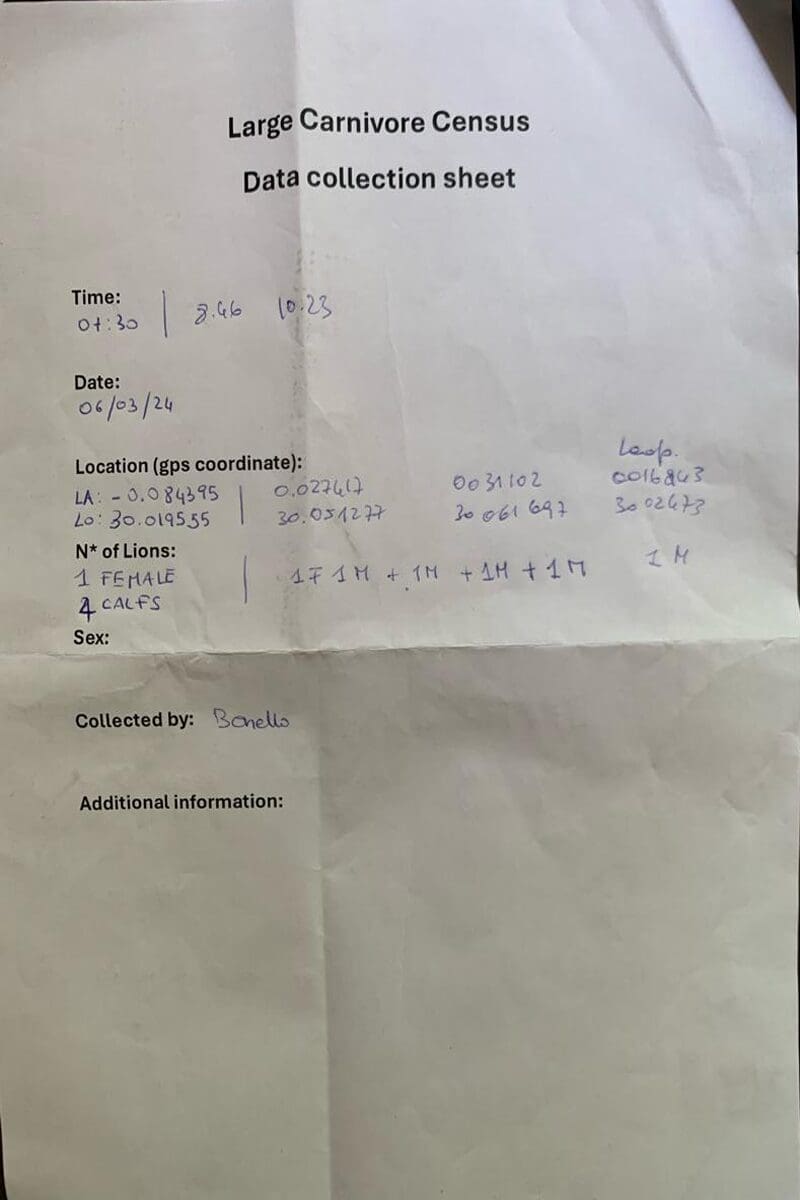 Large Carnivore Census
Data collection sheet
Time:
07:30 | 8.46 10.23
Date:
06/03/24
Location (gps coordinate):
Leop.
LA: - 0.084395 | 0.027417 0031102 0016843
Lo: 30.019555 | 30.051277 30 061 697 30 02473
N* of Lions:
1 FEMALE | 1F 1M + 1M + 1M + 1M 1 M
4 CALFS
Sex:
Collected by: Bonello
Additional information: